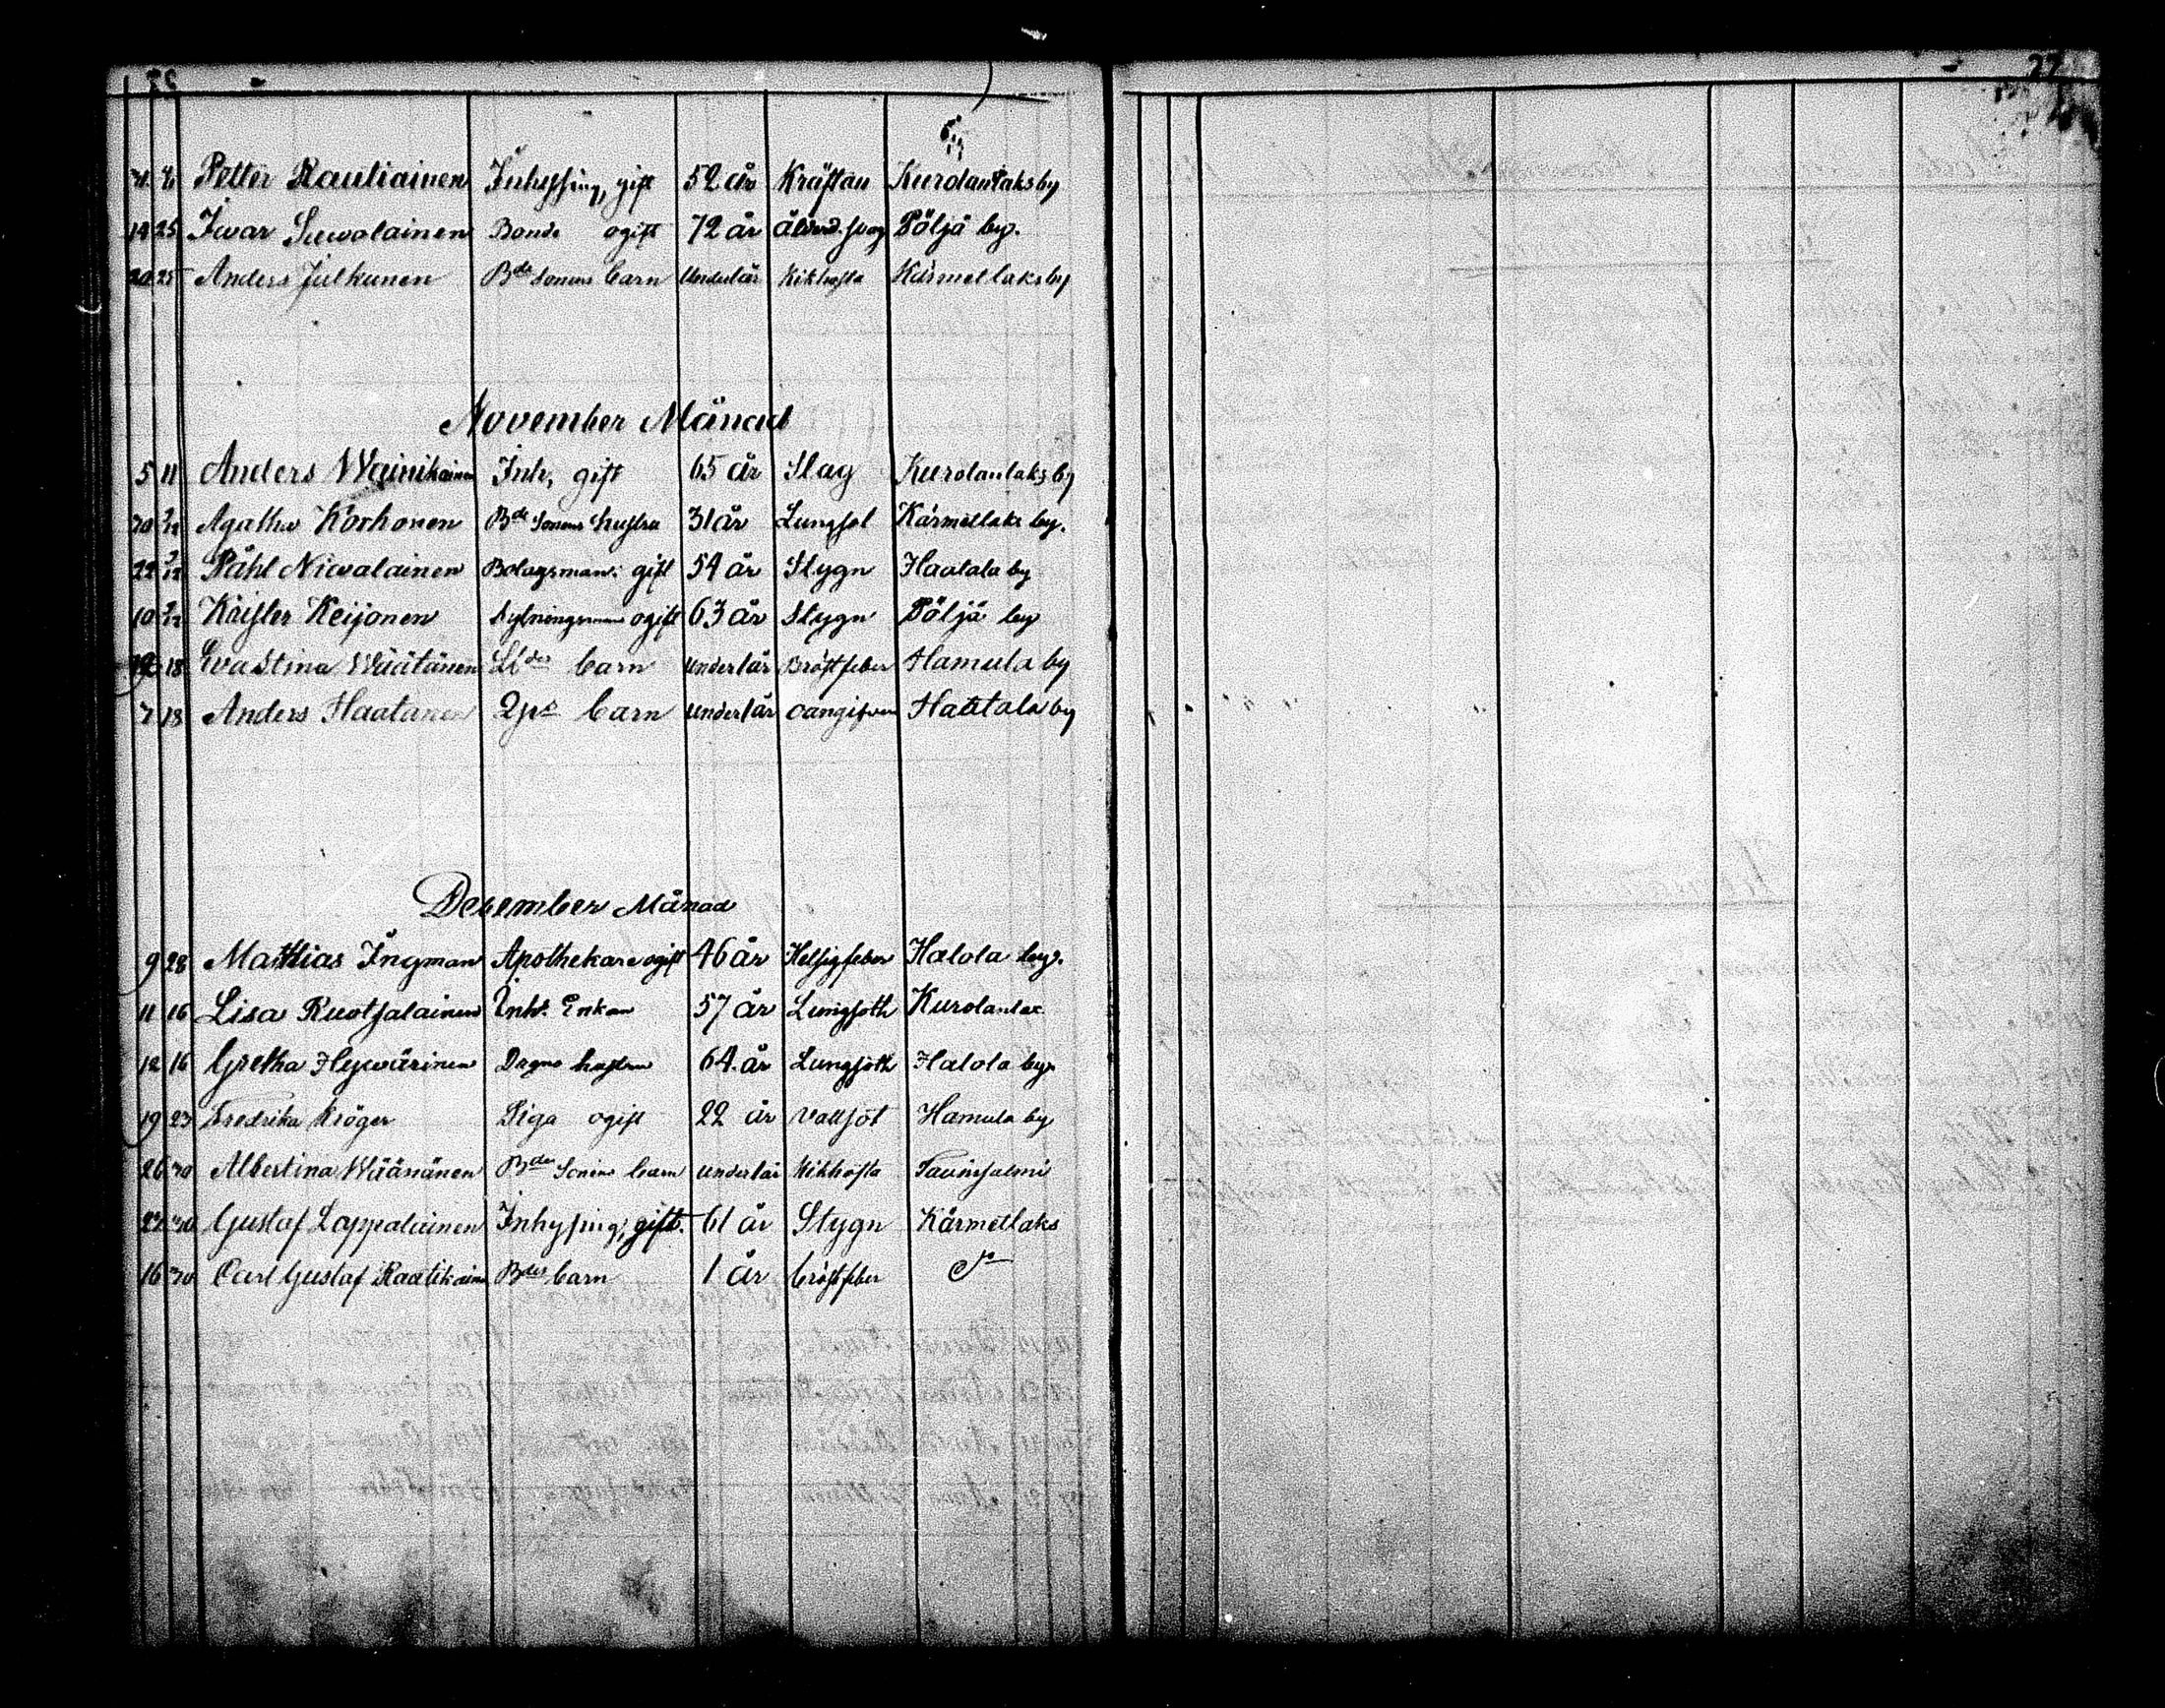 77
Petter Rautiainen Inhysing, gift 52 år Kräftan Kurolanlaks by
19 25 Ivar Suwalainen Bonde ogift 72 år Ålderd. svag Pöljä by.
20 25 Anders Julkunen Bde Sonens barn Under 1 år Kikhosta Kärmetlaks by
November Månad
5 11 Anders Wainikainen Inh, gift 65 år Slag Kurolanlaks by
30 2/12 Agatha Korhonen Bde Sonens hustru 31 år Lungsot Kärmetlaks by.
22 2/12 Påhl Niwalainen Bolagsman gift 54 år Stygn Haatala by
10 2/12 Krister Keijonen ogift 63 år Stygn Pöljä by
18 Eva Stina Wäätänen barn under 1 år Bröstfeber Hamula by
7 18 Anders Haatanen barn under 1 år oangifven Haatala by
December Månad
9 28 Mathias Ingman Apothekare ogift 46 år Halola by.
11 16 Lisa Ruotsalainen Inhs Enkan 57 år Lungsoth Kurolanlax
12 16 Gretha Hywärinen hustru 64 år Lungsoth Halola by
19 23 Fredrika Kröger Piga ogift 22 år Vattsot Hamula by
26 30 Albertina Wäänänen Bde Sonens barn under 1 år Kikhosta Tavinsalmi
27 30 Gustaf Lappalainen Inhysing, gift. 61 år Stygn Kärmetlaks
16 30 Carl Gustaf Raatikainen Bdes barn 1 år bröstfeber